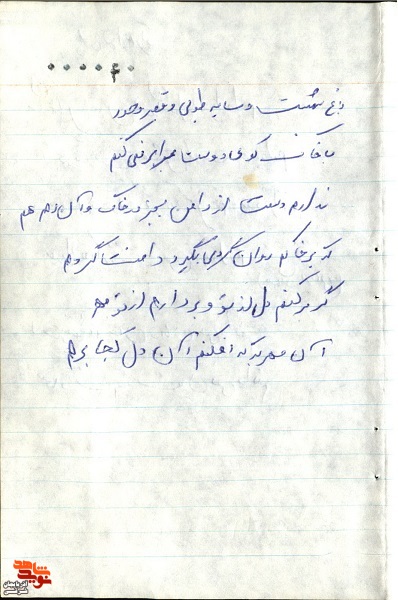 ۴۰۰۰۰۰
باغ بهشت و سایه طوبی و قصر و حور
با خاک کوی دوست برابر نمی‌کنم
ندارم دستت از دامن بجز در خاک و آن دم هم
که بر خاکم روان گردی بگیرد دامنت گردم
گر بر کنم دل از تو و بردارم از تو مهر
آن مهر بر که افکنم آن دل کجا برم
شاهد
نوید